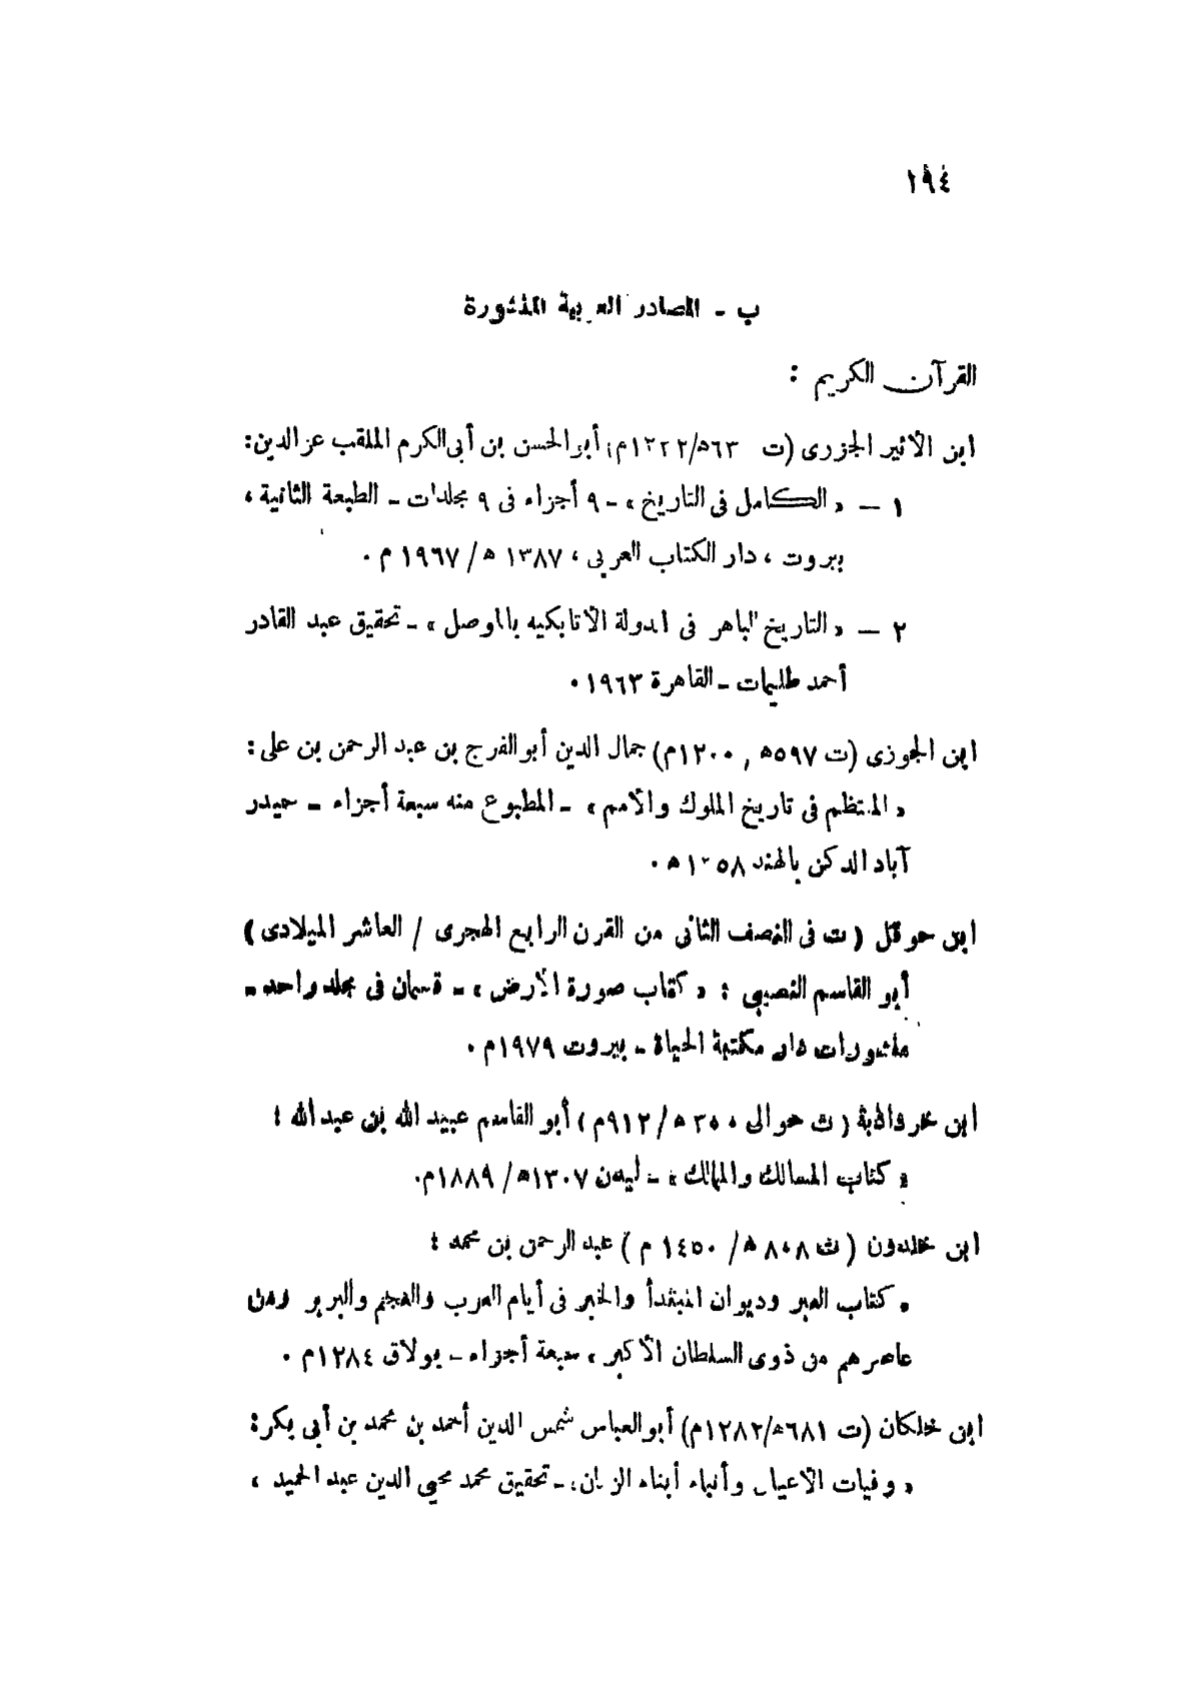 ١٩٤
ب - المصادر العربية المنشورة
القرآن الكريم :
ابن الأثير الجزرى (ت ٥٦٣ه/١٢٢٢م) أبو الحسن بن أبى الكرم الملقب عز الدين:
١ — « الكامل فى التاريخ » - ٩ أجزاء فى ٩ مجلدات - الطبعة الثانية ،
بيروت ، دار الكتاب العربى ، ١٣٨٧ ه/ ١٩٦٧ م .
٢ — « التاريخ الباهر فى الدولة الأتابكيه بالموصل » - تحقيق عبد القادر
أحمد طليمات - القاهرة ١٩٦٣ .
ابن الجوزى (ت ٥٩٧ه , ١٢٠٠م) جمال الدين أبو الفرج بن عبد الرحمن بن على :
« المنتظم فى تاريخ الملوك والأمم » - المطبوع منه سبعة أجزاء - حيدر
آباد الدكن بالهند ١٣٥٨ه .
ابن حوقل ( ت فى النصف الثانى من القرن الرابع الهجرى / العاشر الميلادى )
أبو القاسم النصيبى : « كتاب صورة الأرض » - قسمان فى مجلد واحد -
منشورات دار مكتبة الحياة - بيروت ١٩٧٩م .
ابن خرداذبة ( ت حوالى ٣٠٠ ه/ ٩١٢م ) أبو القاسم عبيد الله بن عبد الله :
« كتاب المسالك والممالك » - ليدن ١٣٠٧ه/ ١٨٨٩م.
ابن خلدون ( ت ٨٠٨ ه/ ١٤٥٠ م ) عبد الرحمن بن محمد :
« كتاب العبر وديوان المبتدأ والخبر فى أيام العرب والعجم والبربر ومن
عاصرهم من ذوى السلطان الأكبر ، سبعة أجزاء - بولاق ١٢٨٤م .
ابن خلكان (ت ٦٨١ه/١٢٨٢م) أبو العباس شمس الدين أحمد بن محمد بن أبى بكر:
« وفيات الأعيان وأنباء أبناء الزمان» - تحقيق محمد محيى الدين عبد الحميد ،